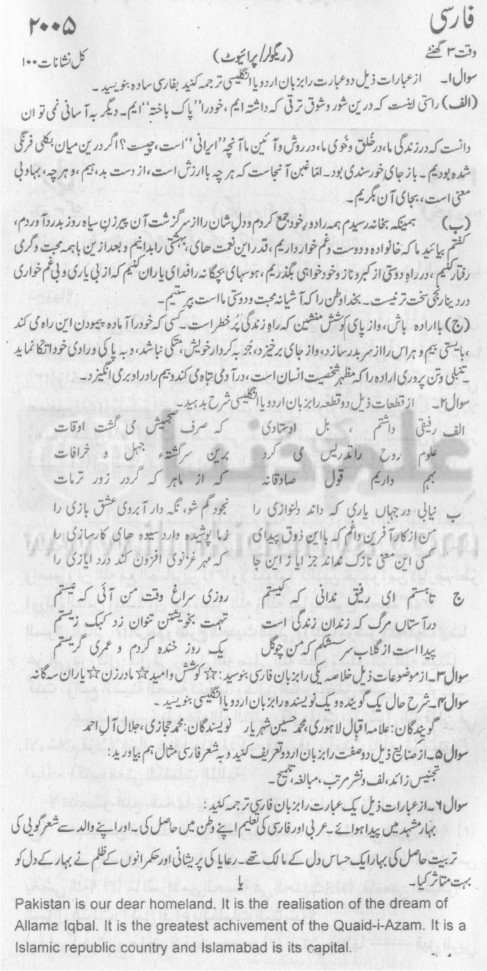 فارسی ۲۰۰۵
وقت ۳ گھنٹے (ریگولر/پرائیوٹ) کل نشانات ۱۰۰
سوال۱۔ از عبارات ذیل دو عبارت را بزبان اردو یا انگلیسی ترجمہ کنید بفارسی سادہ بنویسید۔
(الف) راستی اینست کہ درین شور و شوق ترقی کہ داشتہ ایم، خود را "پاک باختہ" ایم۔ دیگر بہ آسانی نمی توان
دانست کہ در زندگی ما، در خُلق و خُوی ما، در روش و آئین ما آنچہ "ایرانی" است، چیست؟ اگر درین میان بکلی فرنگی
شدہ بودیم۔ باز جای خورسندی بود۔ امّا غبن آنجاست کہ ہر چہ با ارزش است، از دست بدہیم، و ہر چہ بیہا و بی
معنی است، بجای آن بگریم۔
(ب) ہمینکہ بخانہ رسیدم ہمہ را دور خود جمع کردم و دل شان را از سرگزشت آن پیرزن سیاہ روز بدرد آوردم،
گفتم بیائید ما کہ خانوادہ و دوست و غم خوار داریم، قدر این نعمت های بہشتی را بدانیم و بعد ازین با ہمہ محبت و گری
رفتار کنیم، در راہ دوستی از کبر و ناز و خود خواہی بگذریم، ہوسہای بچگانہ را فدای یاران کنیم کہ از بی یاری و بی غم خواری
درد بیارنجی سخت تر نیست۔ بخدا وطن را کہ آشیانہ محبت و دوستی ما است پرستیم۔
(ج) با ارادہ باش، واز پای کوشش منشین کہ راہ زندگی پُر خطر است۔ کسی کہ خود را آمادہ پیمودن این راہ می کند
، بایستی بیم و ہراس را از سر بدر سازد، و از جای بر خیزد، جز بہ کردار خویش، متکی نباشد، و بہ پاکی و رادی خود اتکا نماید
۔ تنبلی و تن پروری ارادہ را کہ مظہر شخصیت انسان است، در آدمی تباہ می کند و بیم را در او بری انگیزد۔
سوال۲۔ از قطعات ذیل دو قطعہ را بزبان اردو یا انگلیسی شرح بدہید۔
الف رفیقی داشتم ، بل اوستادی کہ صرف صحبتش می گشت اوقات
علوم روح را تدریس می کرد برین سرگشتہء جہل و خرافات
بہم داریم قول صادقانہ کہ از ماہر کہ گردر زور تر مات
ب نیابی در جہان یاری کہ داند دلنوازی را بخود گم شو، نگہ دار آبروی عشق بازی را
من از کار آفرین داغم کہ با این ذوق پیدائی زما پوشیدہ دارد شیوہ های کارسازی را
کسی این معنی نازک نداند جز ایاز این جا کہ مہر غزنوی افزون کند درد ایازی را
ج تا ہستم ای رفیق ندانی کہ کیستم روزی سراغ وقت من آئی کہ نیستم
در آستان مرگ کہ زندان زندگی است تہمت بخویشتن نتوان زد کہ زیستم
پیدا است از گلاب سرشکم کہ من چو گل یک روز خندہ کردم و عمری گریستم
سوال۳۔ از موضوعات ذیل خلاصہ یکی را بزبان فارسی بنویسید: ☆ کوشش و امید ☆ مادر زن ☆ یاران سہ گانہ
سوال۴۔ شرح حال یک گویندہ و یک نویسندہ را بزبان اردو یا انگلیسی بنویسید۔
گویندگان: علامہ اقبال لاہوری، محمد حسین شہریار نویسندگان: محمد حجازی، جلال آل احمد
سوال۵۔ از صنایع ذیل دو صفت را بزبان اردو تعریف کنید و بہ شعر فارسی مثال ہم بیاورید:
تجنیس زائد، لف و نشر مرتب، مبالغہ، تلمیح۔
سوال۶۔ از عبارات ذیل یک عبارت را بزبان فارسی ترجمہ کنید:
بہار مشہد میں پیدا ہوائے۔ عربی اور فارسی کی تعلیم اپنے وطن میں حاصل کی۔ اور اپنے والد سے شعر گویی کی
تربیت حاصل کی بہار ایک حساس دل کے مالک تھے۔ رعایا کی پریشانی اور حکمرانوں کے ظلم نے بہار کے دل کو
بہت متاثر کیا۔ یا
Pakistan is our dear homeland. It is the realisation of the dream of
Allama Iqbal. It is the greatest achivement of the Quaid-i-Azam. It is a
Islamic republic country and Islamabad is its capital.